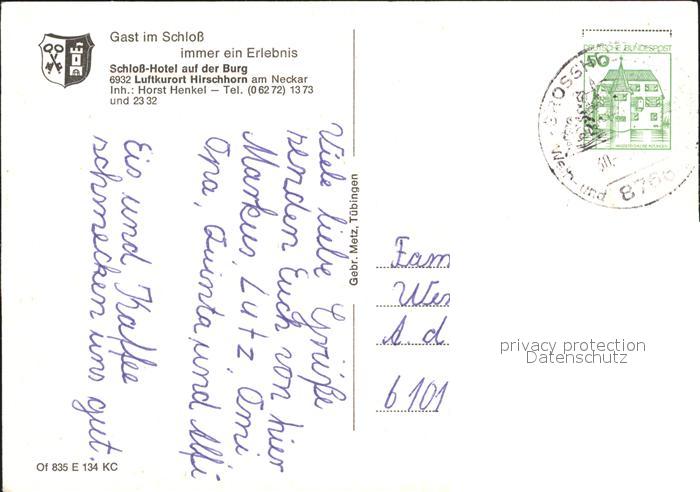 Gast im Schloß
immer ein Erlebnis
Schloß-Hotel auf der Burg
6932 Luftkurort Hirschhorn am Neckar
Inh.: Horst Henkel — Tel. (0 62 72) 13 73
und 23 32
Viele liebe Grüße
senden Euch von hier
Markus, Lutz, Omi
Opa, Quinta, und Alfi
Eis und Kaffee
schmecken uns gut.
Gebr. Metz, Tübingen
DEUTSCHE BUNDESPOST
50
GROSSHO
Wein- und
8766
Fam
Wer
A. d
6101
privacy protection
Datenschutz
Of 835 E 134 KC